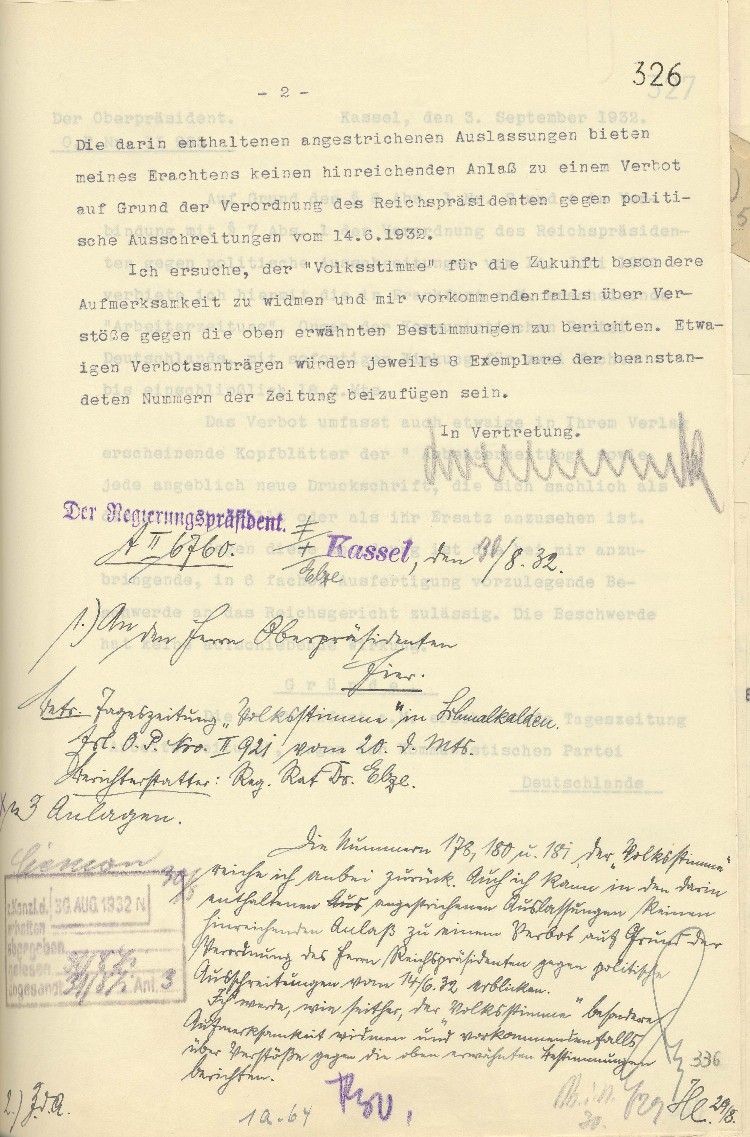 326
- 2 -
Die darin enthaltenen angestrichenen Auslassungen bieten
meines Erachtens keinen hinreichenden Anlaß zu einem Verbot
auf Grund der Verordnung des Reichspräsidenten gegen politi-
sche Ausschreitungen vom 14.6.1932.
Ich ersuche, der "Volksstimme" für die Zukunft besondere
Aufmerksamkeit zu widmen und mir vorkommendenfalls über Ver-
stöße gegen die oben erwähnten Bestimmungen zu berichten. Etwa-
igen Verbotsanträgen würden jeweils 8 Exemplare der beanstan-
deten Nummern der Zeitung beizufügen sein.
In Vertretung.
Der Regierungspräsident.
A II 6760.
Kassel, den 30/8.32.
Elze
1.) An
den Herrn Oberpräsidenten
Hier.
Betr. Tageszeitung "Volksstimme" in Schmalkalden.
Erl. O.P. Nro. II 921 vom 20. d. Mts.
Berichterstatter: Reg. Rat Dr. Elze.
3 Anlagen.
Die Nummern 178, 180 u. 181 der "Volksstimme"
reiche ich anbei zurück. Auch ich kann in den darin
enthaltenen Aus angestrichenen Auslassungen keinen
hinreichenden Anlaß zu einem Verbot auf Grund der
Verordnung des Herrn Reichspräsidenten gegen politische
Ausschreitungen vom 14/6.32 erblicken.
Ich werde, wie seither, der "Volksstimme" besondere
Aufmerksamkeit widmen und vorkommendenfalls
über Verstöße gegen die oben erwähnten Bestimmungen
berichten.
z. Kanzl. d.
erhalten
30. AUG. 1932 N
abgegeben
gelesen
abgesandt Anl. 3
336
2.) Z.d.A.
1a-64
29/8.